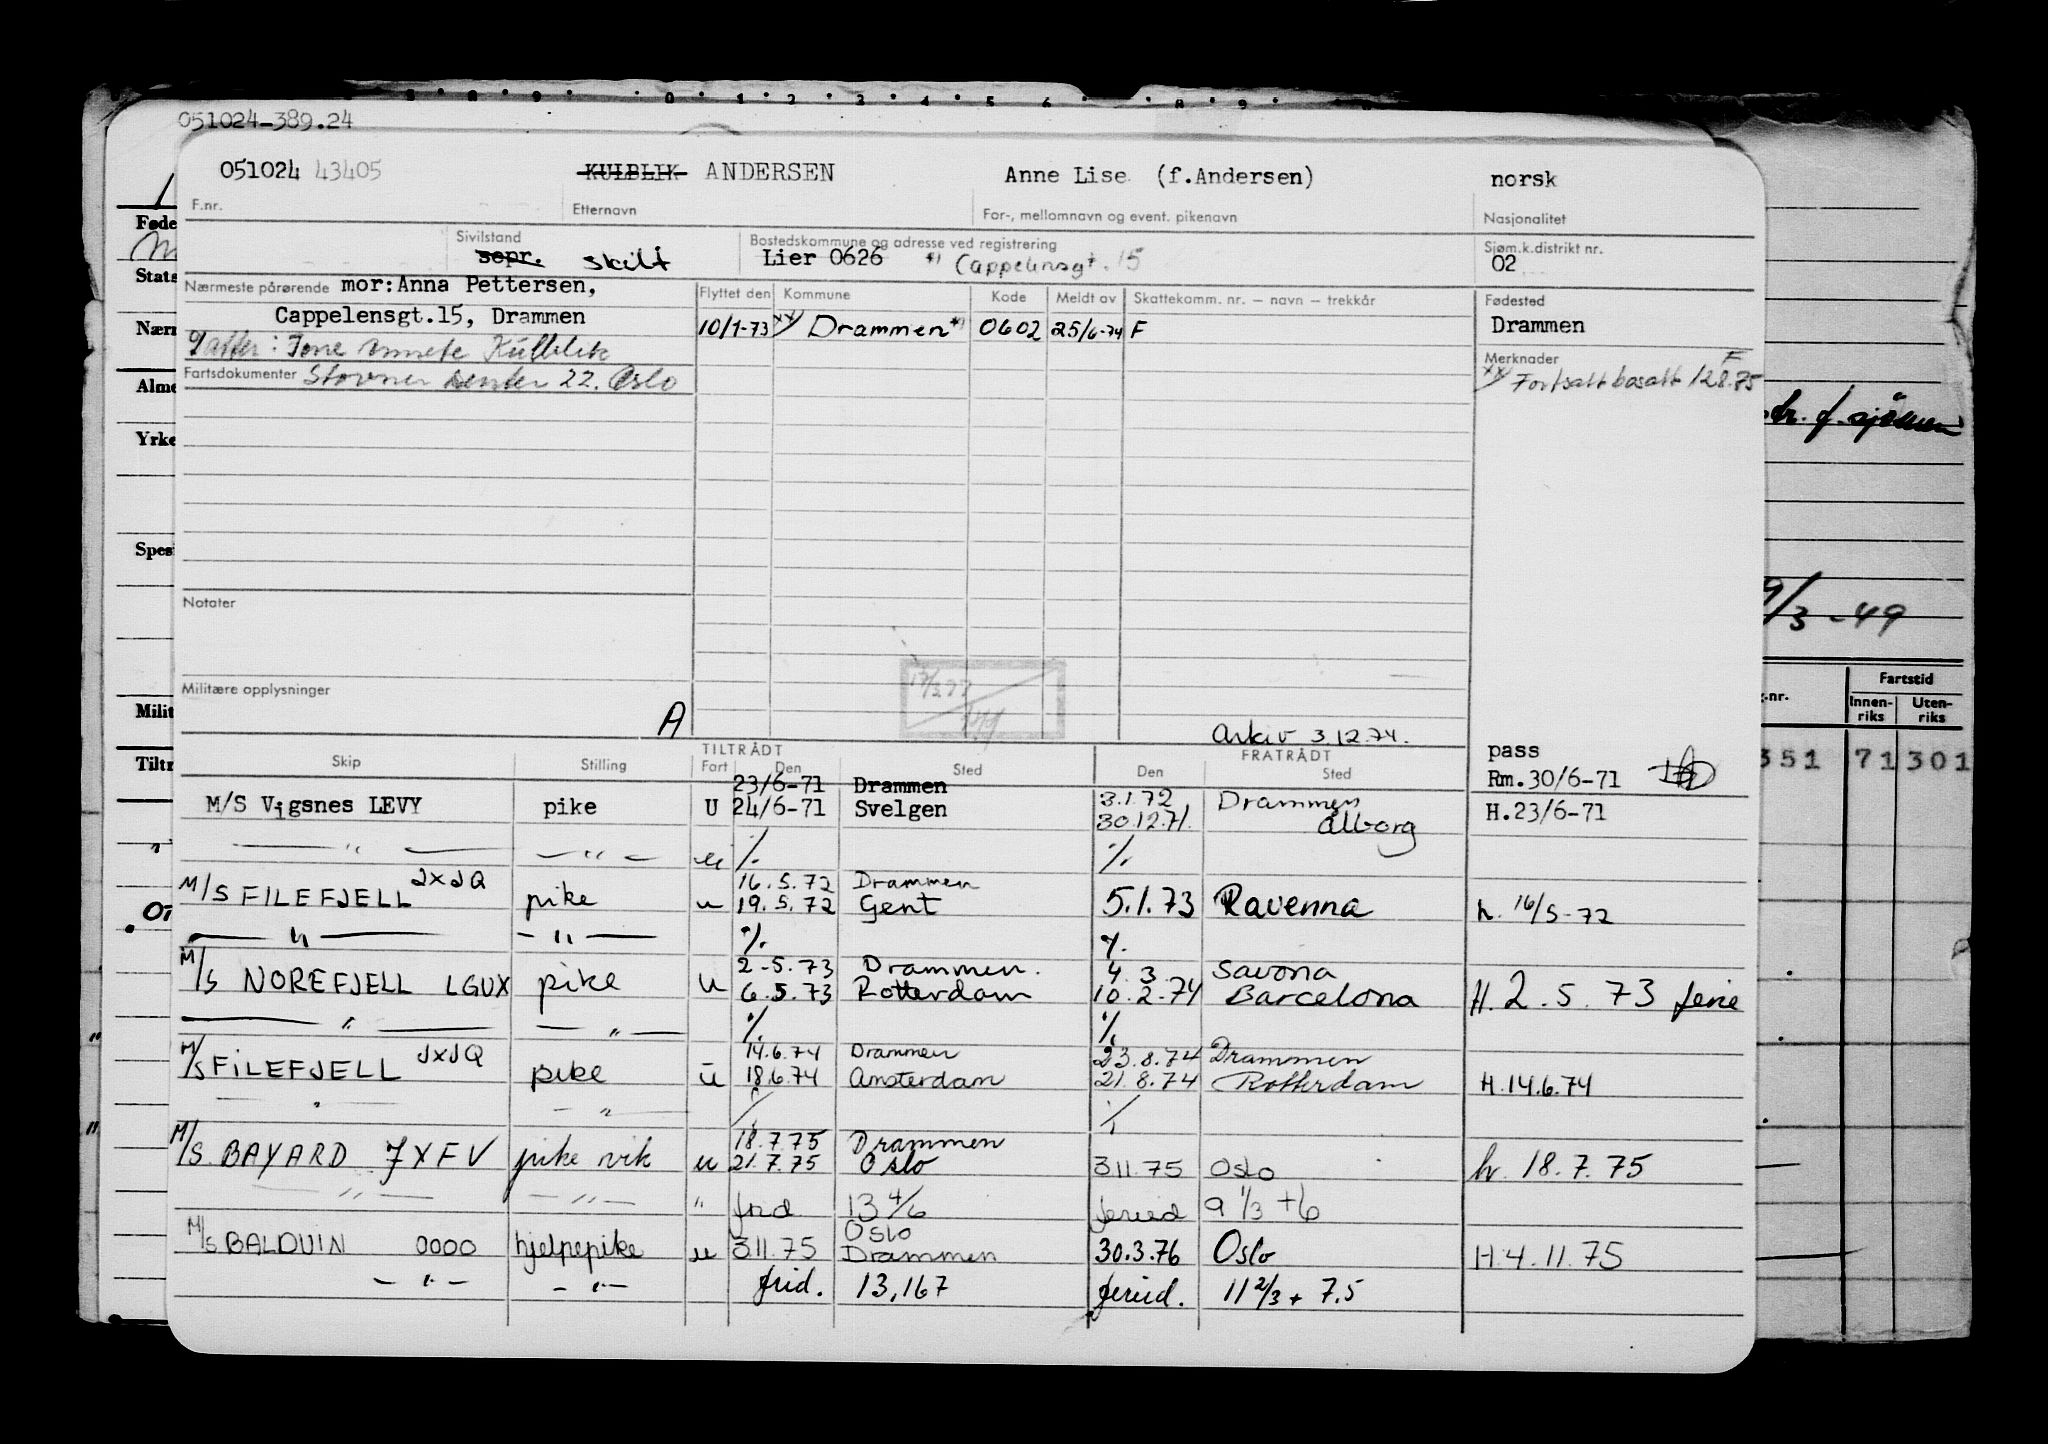 051024-389.24
051024 43405 KULBLIK ANDERSEN Anne Lise (f.Andersen) norsk
F.nr. Etternavn For-, mellomnavn og event. pikenavn Nasjonalitet
Sivilstand Bostedskommune og adresse ved registrering Sjøm.k.distrikt nr.
sepr. skilt Lier 0626 *) Cappelensgt. 15 02
Nærmeste pårørende mor:Anna Pettersen, Flyttet den Kommune Kode Meldt av Skattekomm. nr. – navn – trekkår Fødested
Cappelensgt.15, Drammen 10/1-73 xx) Drammen *) 0602 25/6-74 F Drammen
Kulblik Merknader F
Fartsdokumenter Stovner senter 22. Oslo xx) Fortsatt bosatt 12.8.75
Føde
Stats
Nærm
Alme
Yrke
Spesi
Milit
Tiltr
f. sjömenn
9/3-49
Notater
Militære opplysninger A
Arkiv 3.12.74.
Fartstid
Innen-riks Uten-riks
351 71 301
TILTRÅDT FRATRÅDT pass
Skip Stilling Fart Den Sted Den Sted Rm.30/6-71
23/6-71 Drammen
M/S Vigsnes LEVY pike U 24/6-71 Svelgen 3.1.72 Drammen H.23/6-71
30.12.71. Ålborg
— " — — " — u ./. ./.
16.5.72 Drammen
M/S FILEFJELL JXJQ pike u 19.5.72 Gent 5.1.73 Ravenna h. 16/5-72
— " — — " — ./. ./.
2-5.73 Drammen. 4.3 Savona
M/S NOREFJELL LGUX pike u 6.5.73 Rotterdam 10.2-74 Barcelona H. 2.5.73 ferie
— " — — " — ./. ./.
14.6.74 Drammen 23.8.74 Drammen
M/S FILEFJELL JXJQ pike u 18.6.74 Amsterdam 21.8.74 Rotterdam H.14.6.74
" — " — ./. ./.
18.7.75 Drammen
M/S BAYARD JXFV pike vik u 21.7.75 Oslo 3.11.75 Oslo h. 18.7.75
— " — — " — " frid 13 4/6 feried 9 1/3 + 6
Oslo
M/S BALDUIN OOOO hjelpepike u 3.11.75 Drammen 30.3.76 Oslo H.4.11.75
— " — — " — frid. 13,167 feried. 11 2/3 + 7.5